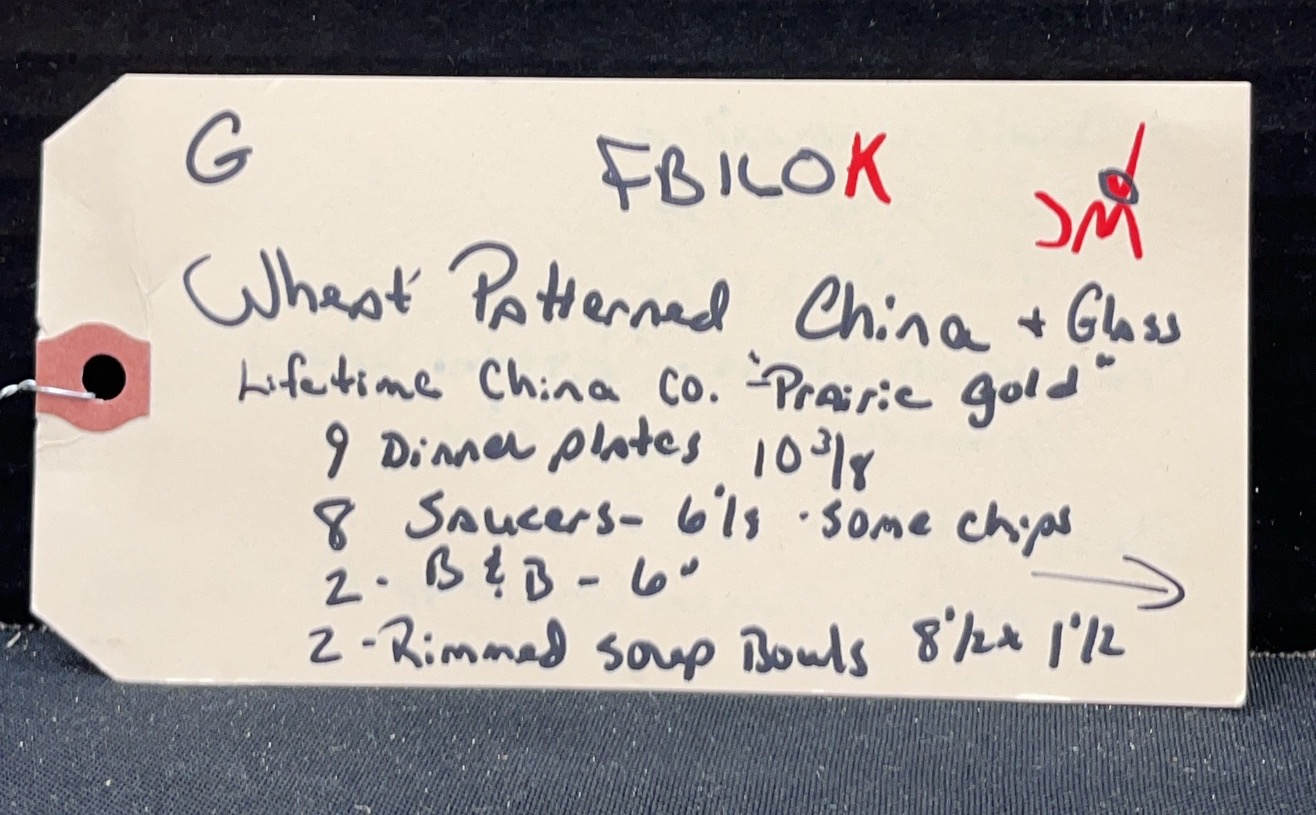 G FB1LOK JM
Wheat Patterned China + Glass
Lifetime China Co. "Prairie gold"
9 Dinner plates 10 3/8
8 Saucers- 6 1/8 - some chips
2 - B & B - 6"
2 - Rimmed soup Bowls 8 1/2 x 1 1/2